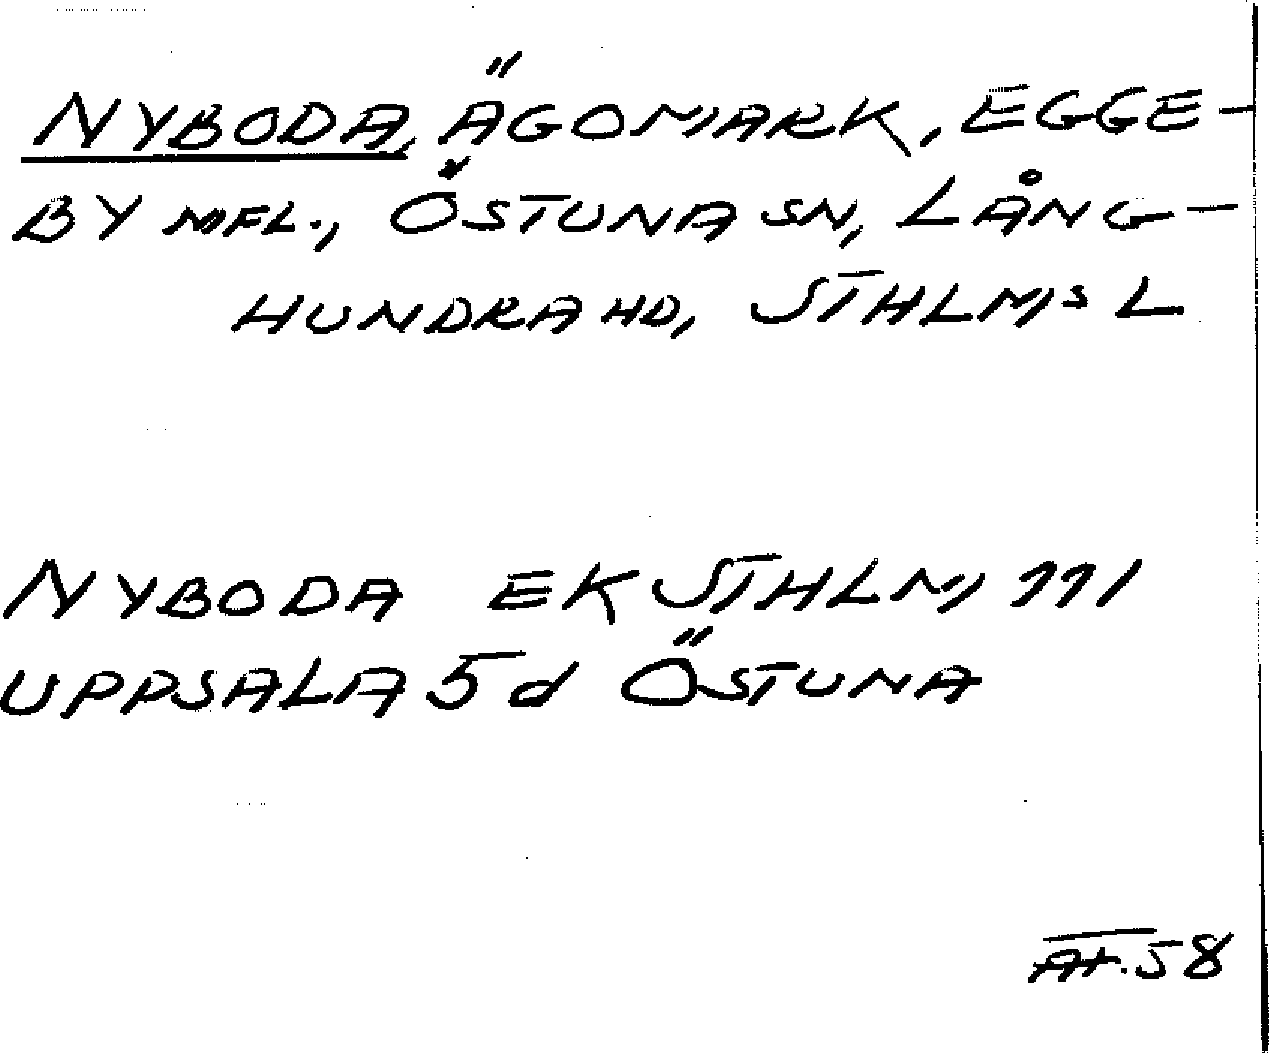 NYBODA, ÄGOMARK, EGGE-
BY MFL., ÖSTUNA SN, LÅNG-
HUNDRA HD, STHLMS L
NYBODA EK STHLM 111
UPPSALA 5d ÖSTUNA
58